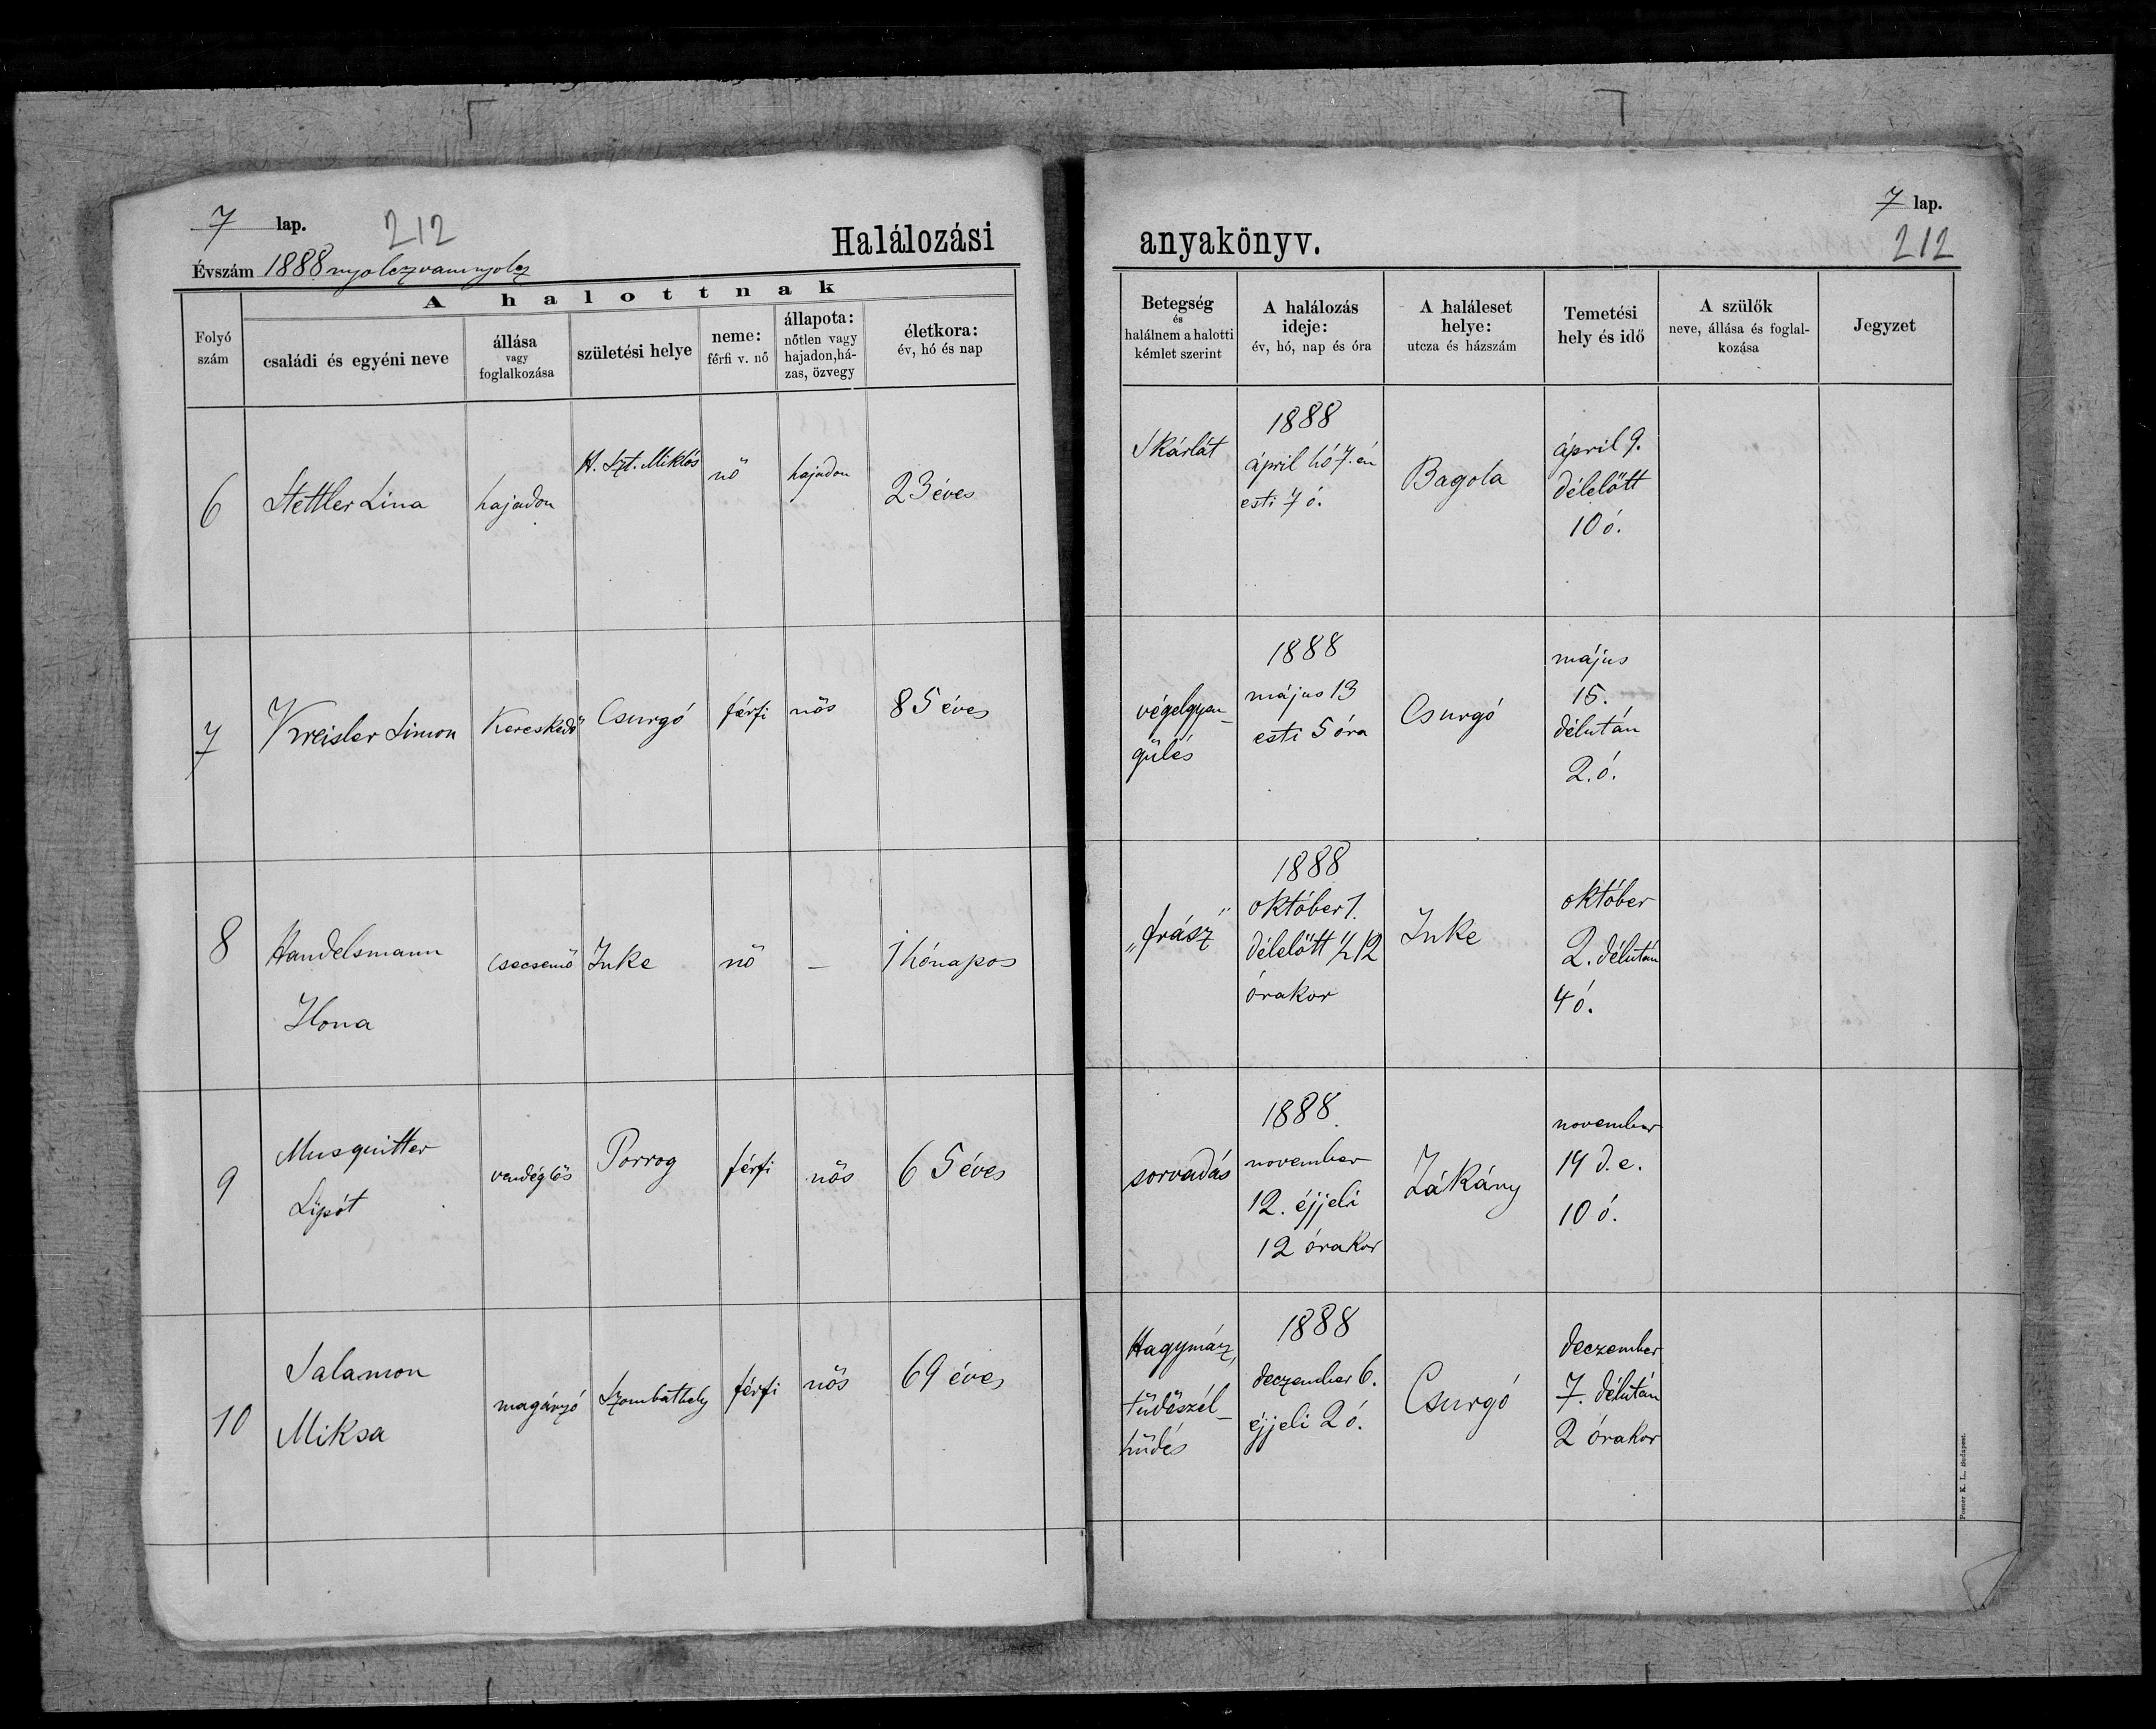 7 lap. 212
Halálozási
Évszám 1888 nyolczvannyolcz
A halottnak
Folyó szám
családi és egyéni neve
állása vagy foglalkozása
születési helye
neme: férfi v. nő
állapota: nőtlen vagy hajadon, házas, özvegy
életkora: év, hó és nap
6
Stettler Lina
hajadon
H. Szt. Miklós
nő
hajadon
23 éves
7
Kreisler Simon
Kereskedő
Csurgó
férfi
nős
85 éves
8
Handelsmann
Ilona
csecsemő
Inke
nő
–
1 hónapos
9
Lipót
vendéglős
Porrog
férfi
nős
65 éves
10
Salamon
Miksa
magánzó
Szombathely
férfi
nős
69 éves
7 lap.
anyakönyv.
212
Betegség
és
halálnem a halotti
kémlet szerint
A halálozás
ideje:
év, hó, nap és óra
A haláleset
helye:
utcza és házszám
Temetési
hely és idő
A szülők
neve, állása és foglal-
kozása
Jegyzet
Skárlát
1888
ápril hó 7. én
esti 7 ó.
Bagola
ápril 9.
délelőtt
10 ó.
végelgyen-
gülés
1888
május 13
esti 5 óra
Csurgó
május
15.
délután
2. ó.
„frász"
1888
október 1.
délelőtt ½12
órakor
Inke
október
2. délután
4 ó.
sorvadás
1888.
november
12. éjjeli
12 órakor
Zákány
november
14 d. e.
10 ó.
Hagymáz,
tüdőszél-
hűdés
1888
deczember 6.
éjjeli 2 ó.
Csurgó
deczember
7. délután
2 órakor
Posner K. L., Budapest.